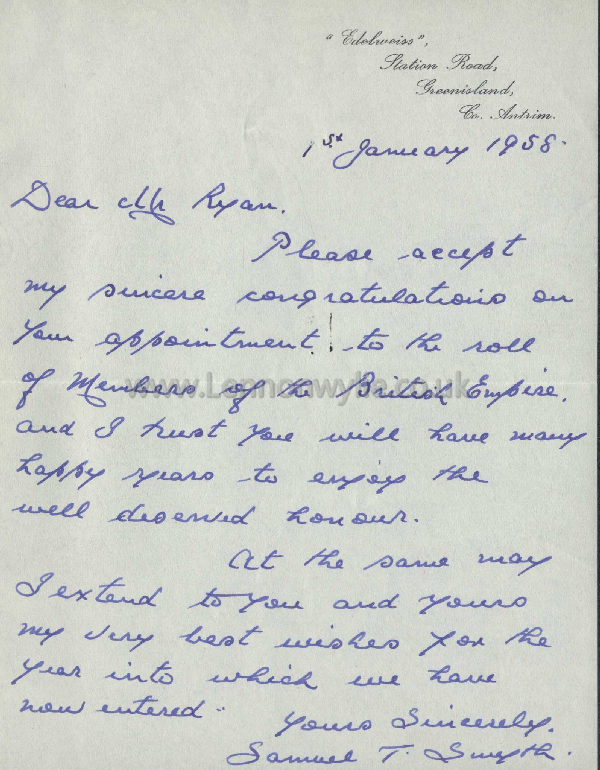 "Edelweiss",
Station Road,
Greenisland,
Co. Antrim.
1st January 1958.
Dear Mr Ryan.
Please accept
my sincere congratulations on
your appointment to the roll
of Members of the British Empire,
www.Lennonwylie.co.uk
and I trust you will have many
happy years to enjoy the
well deserved honour.
At the same may
I extend to you and yours
my very best wishes for the
year into which we have
now entered.
Yours Sincerely,
Samuel T. Smyth.